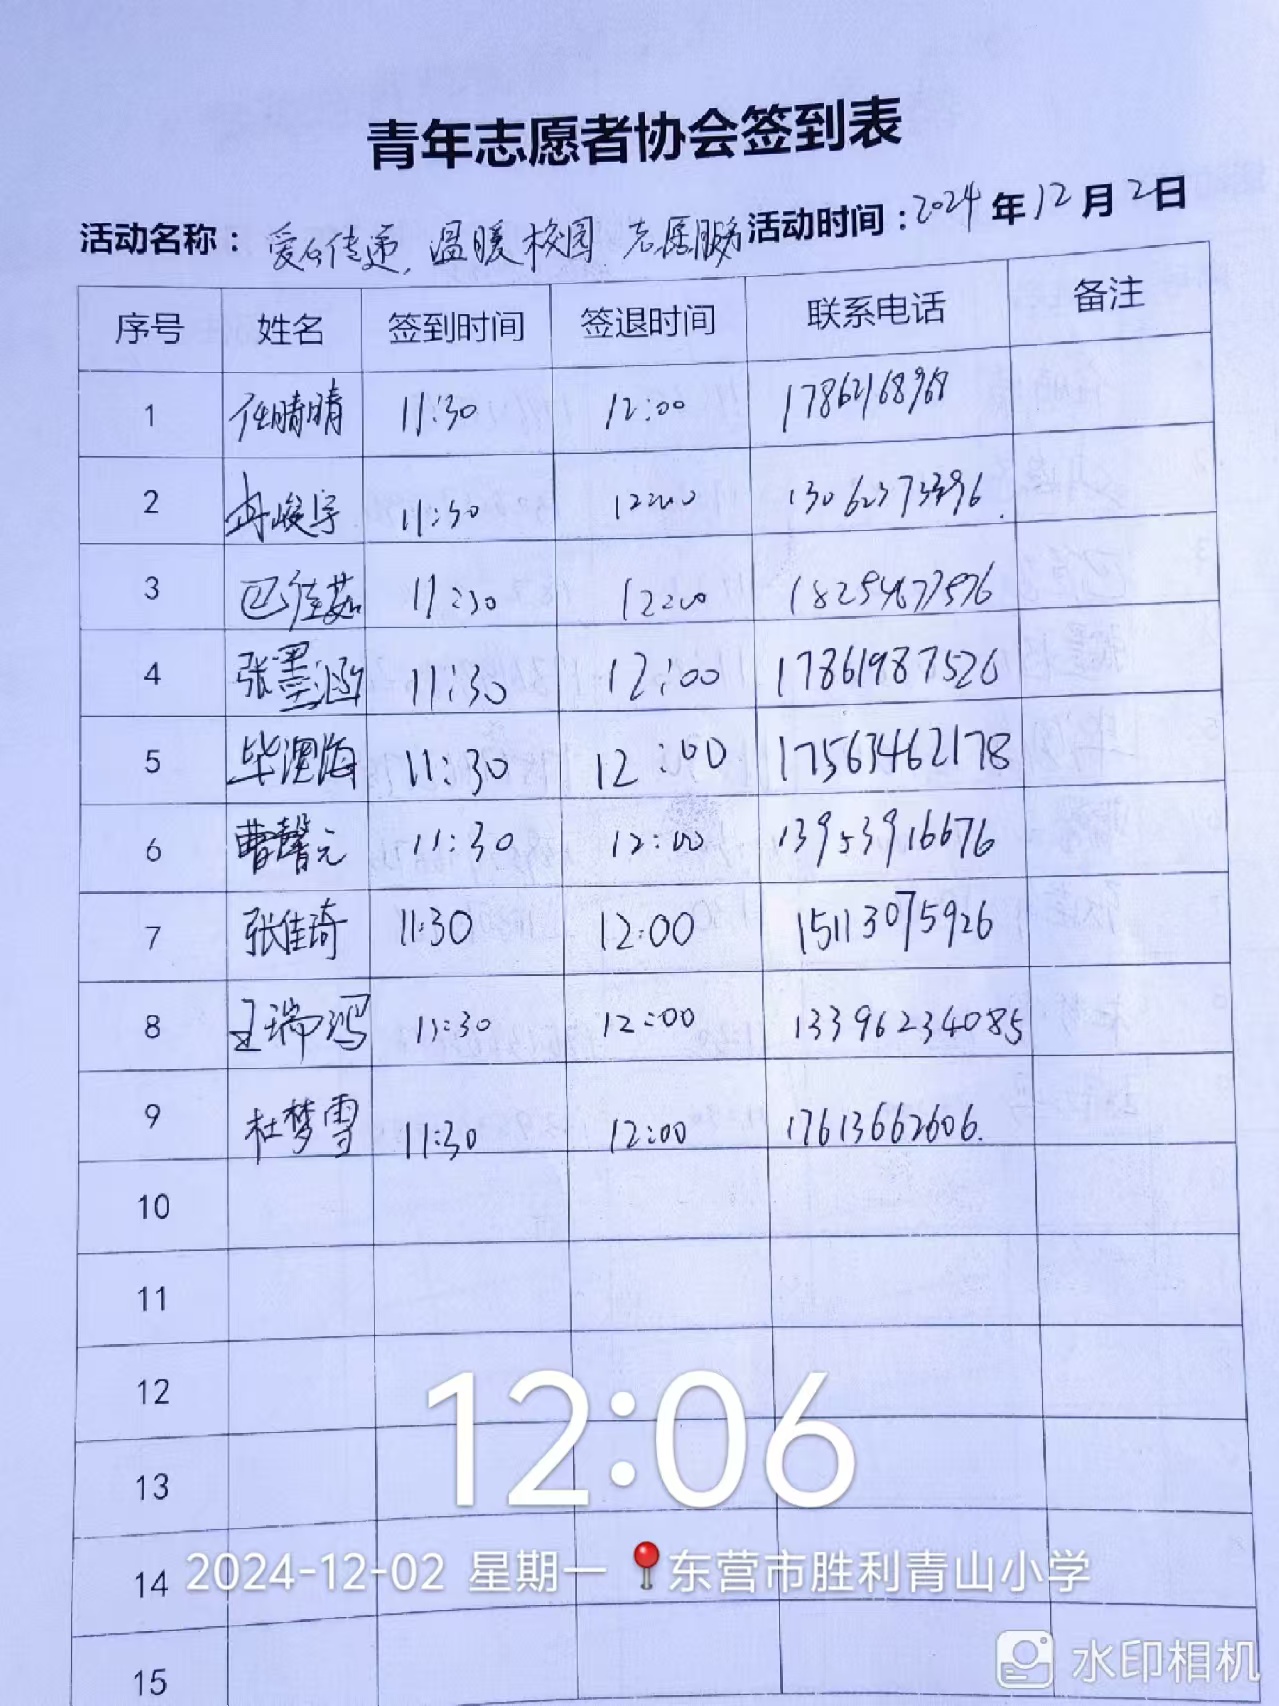 青年志愿者协会签到表
活动名称：爱心传递，温暖校园 志愿服务 活动时间：2024年12月2日
序号 姓名 签到时间 签退时间 联系电话 备注
1 任晴晴 11:30 12:00 17862168968
2 冉峻宇 11:30 12:00
3 巴佳茹 11:30 12:00
4 张墨涵 11:30 12:00 17861987526
5 毕海 11:30 12:00 17563462178
6 曹馨元 11:30 12:00 13953916676
7 张佳琦 11:30 12:00 15113075926
8 王瑞 11:30 12:00 13396234085
9 杜梦雪 11:30 12:00 17613662606.
10
11
12
13
14
15
12:06
2024-12-02 星期一 东营市胜利青山小学
水印相机